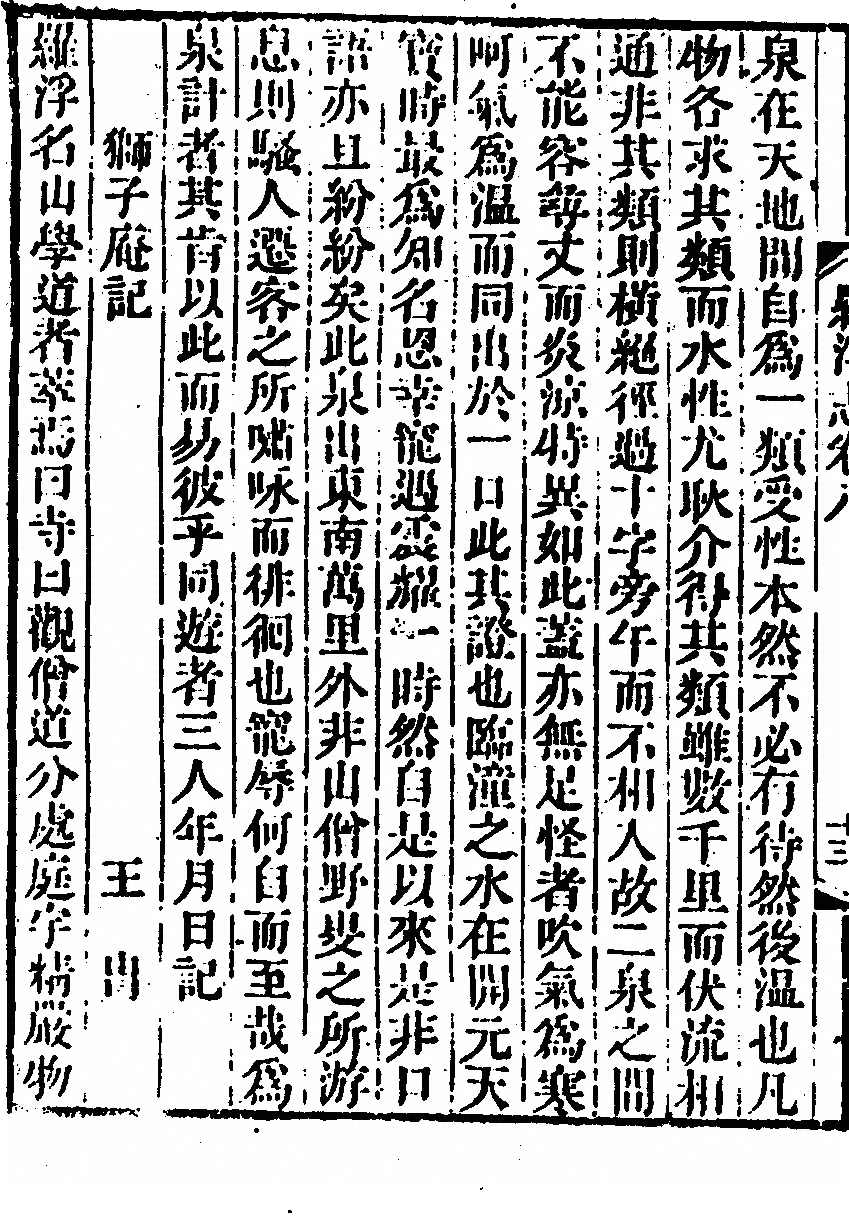 泉在天地間自為一類受性本然不必有待然後温也凡
物各求其類而水性尤耿介得其類雖數千里而伏流相
通非其類則橫絕徑過十字旁午而不相入故二泉之間
不能容尋丈而炎涼特異如此蓋亦無足怪者吹氣為寒
呵氣為温而同出於一口此其證也臨潼之水在開元天
寶時最為知名恩幸寵遇震耀一時然自是以來是非口
語亦且紛紛矣此泉出東南萬里外非山僧野叟之所游
息則騷人遷客之所嘯咏而徘徊也寵辱何自而至哉為
泉計者其肯以此而易彼乎同遊者三人年月日記
獅子庵記 王冑
羅浮名山學道者萃焉曰寺曰觀僧道分處庭宇精嚴物